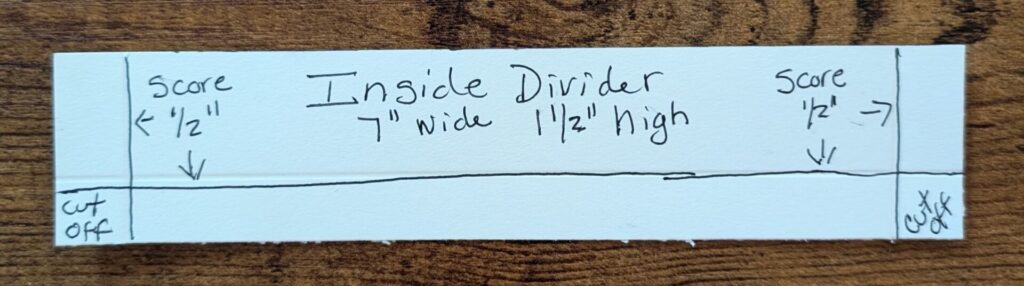 Score
← 1/2"
↓
Inside Divider
7" wide 1 1/2" high
Score
1/2" →
↓
cut
off
cut
off